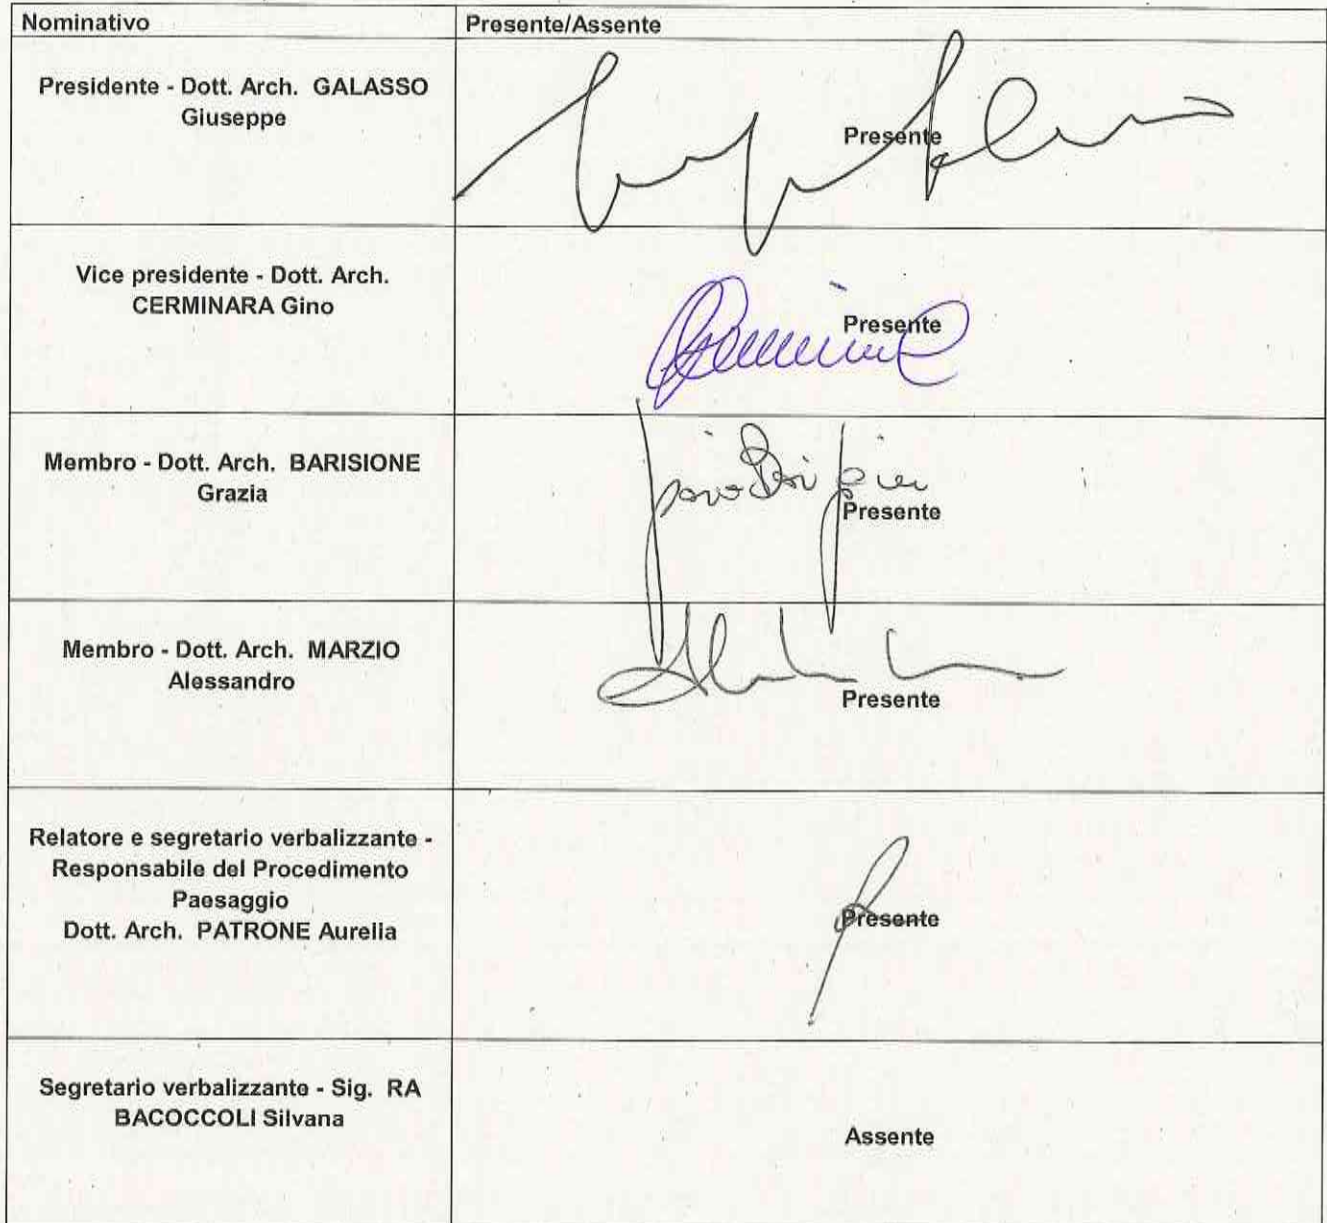 Nominativo
Presente/Assente
Presidente - Dott. Arch. GALASSO
Giuseppe
Presente
Vice presidente - Dott. Arch.
CERMINARA Gino
Presente
Membro - Dott. Arch. BARISIONE
Grazia
Presente
Membro - Dott. Arch. MARZIO
Alessandro
Presente
Relatore e segretario verbalizzante -
Responsabile del Procedimento
Paesaggio
Dott. Arch. PATRONE Aurelia
Presente
Segretario verbalizzante - Sig. RA
BACOCCOLI Silvana
Assente